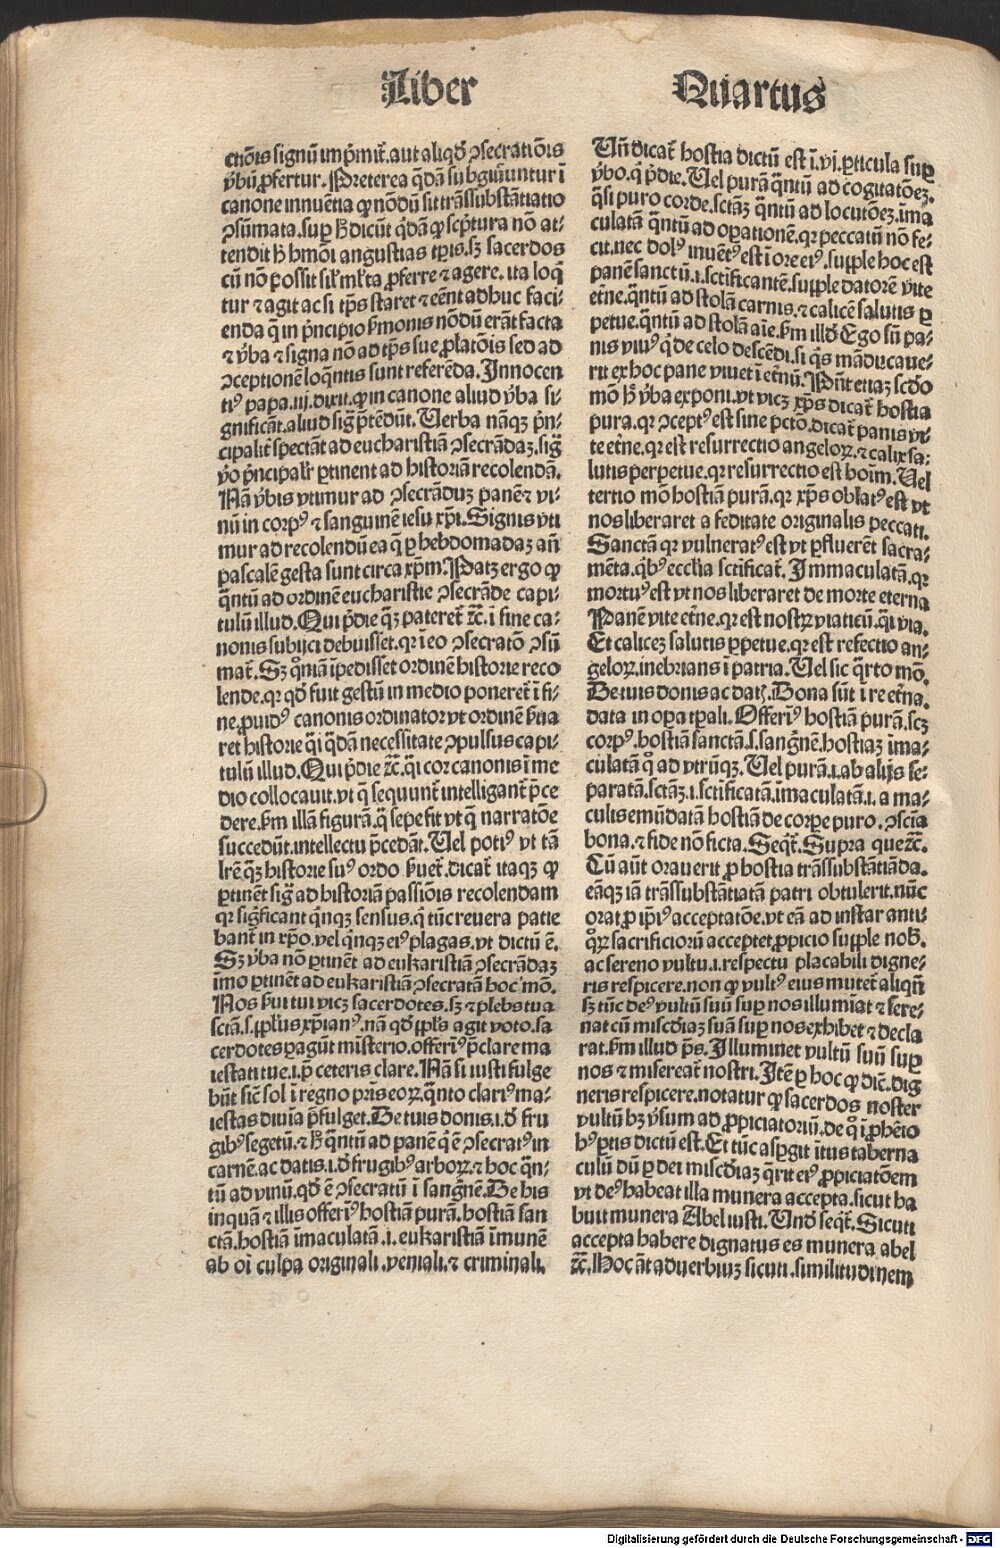 Liber Quartus
ctiōis signū imp̄mit̄. aut aliqd̄ ꝯsecratiōis
v̄bū ꝓfertur. Preterea q̄dā subgiūuntur ī
canone innuētia ꝙ nōdū sit trāssubstātiatio
ꝯsūmata. suꝑ h̄ dicūt q̄dā ꝙ scp̄tura nō at⸗
tendit h̄ hmōi angustias tp̄is. sꝫ sacerdos
cū nō possit sil̓ ml̓ta ꝓferre ⁊ agere. ita loq̄
tur ⁊ agit ac si tp̄s staret ⁊ eēnt adhuc faci⸗
enda q̄ in pn̄cipio s̄monis nōdū erāt facta
⁊ v̄ba ⁊ signa nō ad tp̄s sue ꝓlatōis sed ad
ꝯceptionē loq̄ntis sunt referēda. Innocen
tiꝰ papa .iij. dixit. ꝙ in canone aliud v̄ba si⸗
gnificāt. aliud siḡ p̄tēdūt. Verba nāqꝫ p̄n⸗
cipalit̄ spectāt ad eucharistiā ꝯsecrādaꝫ. siḡ
v̄o p̄ncipalr̄ ꝑtinent ad historiā recolendā.
Nā v̄bis vtimur ad ꝯsecrāduꝫ panē ⁊ vi⸗
nū in corpꝰ ⁊ sanguinē iesu xp̄i. Signis vti
mur ad recolendū ea q̄ ꝑ hebdomadaꝫ an̄
pascalē gesta sunt circa xp̄m. Patꝫ ergo ꝙ
q̄ntū ad ordinē eucharistie ꝯsecrāde capi⸗
tulū illud. Qui p̄die q̄ꝫ pateret̄ ⁊c̄. ī fine ca⸗
nonis subijci debuisset. qꝛ ī eo ꝯsecratō ꝯsū
mat̄. Sꝫ qm̄ia īpedisset ordinē historie reco
lende. qꝛ qd̄ fuit gestū in medio poneret̄ ī fi⸗
ne. ꝓuidꝰ canonis ordinator vt ordinē s̄ua
ret historie q̄i q̄dā necessitate ꝯpulsus capi⸗
tulū illud. Qui p̄die ⁊c̄. q̄i cor canonis ī me
dio collocauit. vt q̄ sequunt̄ intelligant̄ p̄ce
dere. s̄m illā figurā. q̄ sepe fit vt q̄ narratōe
succedūt. intellectu p̄cedāt. Vel potiꝰ vt tā
lr̄e q̄ꝫ historie suꝰ ordo s̄uet̄. dicat̄ itaqꝫ ꝙ
ꝑtinēt siḡ ad historiā passiōis recolendam
qꝛ siḡficant q̄nqꝫ sensus. q̄ tūc reuera patie
bant̄ in xp̄o. vel q̄nqꝫ eiꝰ plagas. vt dictū ē.
Sꝫ v̄ba nō ꝑtinēt ad eukaristiā ꝯsecrādaꝫ
īmo ꝑtinēt ad eukaristiā ꝯsecratā hoc mō.
Nos s̄ui tui vicꝫ sacerdotes. sꝫ ⁊ plebs tua
sctā. s. ppl̓us xp̄ianꝰ. nā qd̄ ppl̓s agit voto. sa
cerdotes ꝑagūt misterio. offerīꝰ p̄clare ma
iestati tue. i. p̄ ceteris clare. Nā si iusti fulge
būt sic̄ sol ī regno pr̄is eoꝝ. q̄nto clariꝰ ma⸗
iestas diuīa p̄fulget. De tuis donis .i. d̄ fru
gibꝰ segetū. ⁊ h̄ q̄ntū ad panē q̄ ē ꝯsecratꝰ in
carnē. ac datis. i. d̄ frugibꝰ arboꝝ. ⁊ hoc q̄n⸗
tū ad vinū. qd̄ ē ꝯsecratū ī sanḡnē. De his
inquā ⁊ illis offerīꝰ hostiā purā. hostiā san
ctā. hostiā īmaculatā .i. eukaristiā īmunē
ab oī culpa originali. veniali. ⁊ criminali.
Vn̄ dicat̄ hostia dictū est ī .vj. ꝑticula suꝑ
v̄bo. q̄ p̄die. Vel purā q̄ntū ad cogitatōeꝫ.
q̄si puro corde. sctāꝫ q̄ntū ad locutōeꝫ. īma
culatā q̄ntū ad oꝑationē. qꝛ peccatū nō fe⸗
cit. nec dolꝰ inuētꝰ est ī ore eiꝰ. supple hoc est
panē sanctū .i. sctificantē. supple datorē vite
etn̄e. q̄ntū ad stolā carnis. ⁊ calicē salutis ꝑ
petue. q̄ntū ad stolā aīe. s̄m illd̄ Ego sū pa⸗
nis viuꝰ q̄ de celo descēdi. si q̄s māducaue⸗
rit ex hoc pane viuet ī etn̄ū. Pn̄t etiaꝫ scd̄o
mō h̄ v̄ba exponi. vt vicꝫ xp̄s dicat̄ hostia
pura. qꝛ ꝯceptꝰ est sine pctō. dicat̄ panis vi⸗
te etn̄e. qꝛ est resurrectio angeloꝝ. ⁊ calix sa⸗
lutis perpetue. qꝛ resurrectio est hoīm. Vel
tertio mō hostiā purā. qꝛ xp̄s oblatꝰ est vt
nos liberaret a feditate originalis peccati.
Sanctā qꝛ vulneratꝰ est vt ꝑfluerēt sacra⸗
mēta. qbꝰ eccl̓ia sctificat̄. Immaculatā. qꝛ
mortuꝰ est vt nos liberaret de morte eterna
Panē vite etn̄e. qꝛ est nostꝝ viaticū. q̄i via.
Et caliceꝫ salutis ꝑpetue. qꝛ est refectio an⸗
geloꝝ. inebrians ī patria. Vel sic q̄rto mō.
De tuis donis ac datꝭ. Dona sūt ī re etn̄a.
data in oꝑa tp̄ali. Offerīꝰ hostiā purā. scꝫ
corpꝰ. hostiā sanctā. s. sanḡnē. hostiaꝫ īma⸗
culatā q̊ ad vtrūqꝫ. Vel purā. i. ab alijs se⸗
paratā. sctāꝫ. i. sctificatā. īmaculatā. i. a ma⸗
culis emūdatā hostiā de corpe puro. ꝯsciā
bona. ⁊ fide nō ficta. Seqt̄. Supra que ⁊c̄.
Cū aūt orauerit ꝓ hostia trāssubstātiāda.
eāqꝫ iā trāssubstātiatā patri obtulerit. nūc
orat ꝓ ip̄iꝰ acceptatōe. vt eā ad instar anti⸗
quoꝝ sacrificioꝝ acceptet. ꝓpicio supple nob̄.
ac sereno vultu. i. respectu placabili digne⸗
ris respicere. non ꝙ vultꝰ eius mutet̄ aliqn̄
sꝫ tūc deꝰ vultū suū suꝑ nos illumīat ⁊ sere⸗
nat cū miscd̄iaꝫ suā suꝑ nos exhibet ⁊ decla
rat. s̄m illud ps̄. Illuminet vultū suū suꝑ
nos ⁊ misereat̄ nostri. Itē ꝑ hoc ꝙ dic̄. dig
neris respicere. notatur ꝙ sacerdos noster
vultū hꝫ v̄sum ad ꝓpiciatoriū. de q̊ ī ꝓhēio
hꝰ ꝑtis dictū est. Et tūc aspgit ītus taberna
culū dū ꝑ dei miscd̄iaꝫ q̄rit eiꝰ ꝓpiciatōem
vt deꝰ habeat illa munera accepta. sicut ha
buit munera Abel iusti. Vnd̄ seqt̄. Sicuti
accepta habere dignatus es munera abel
⁊c̄. Hoc āt aduerbiuꝫ sicuti. similitudinem
Digitalisierung gefördert durch die Deutsche Forschungsgemeinschaft - DFG